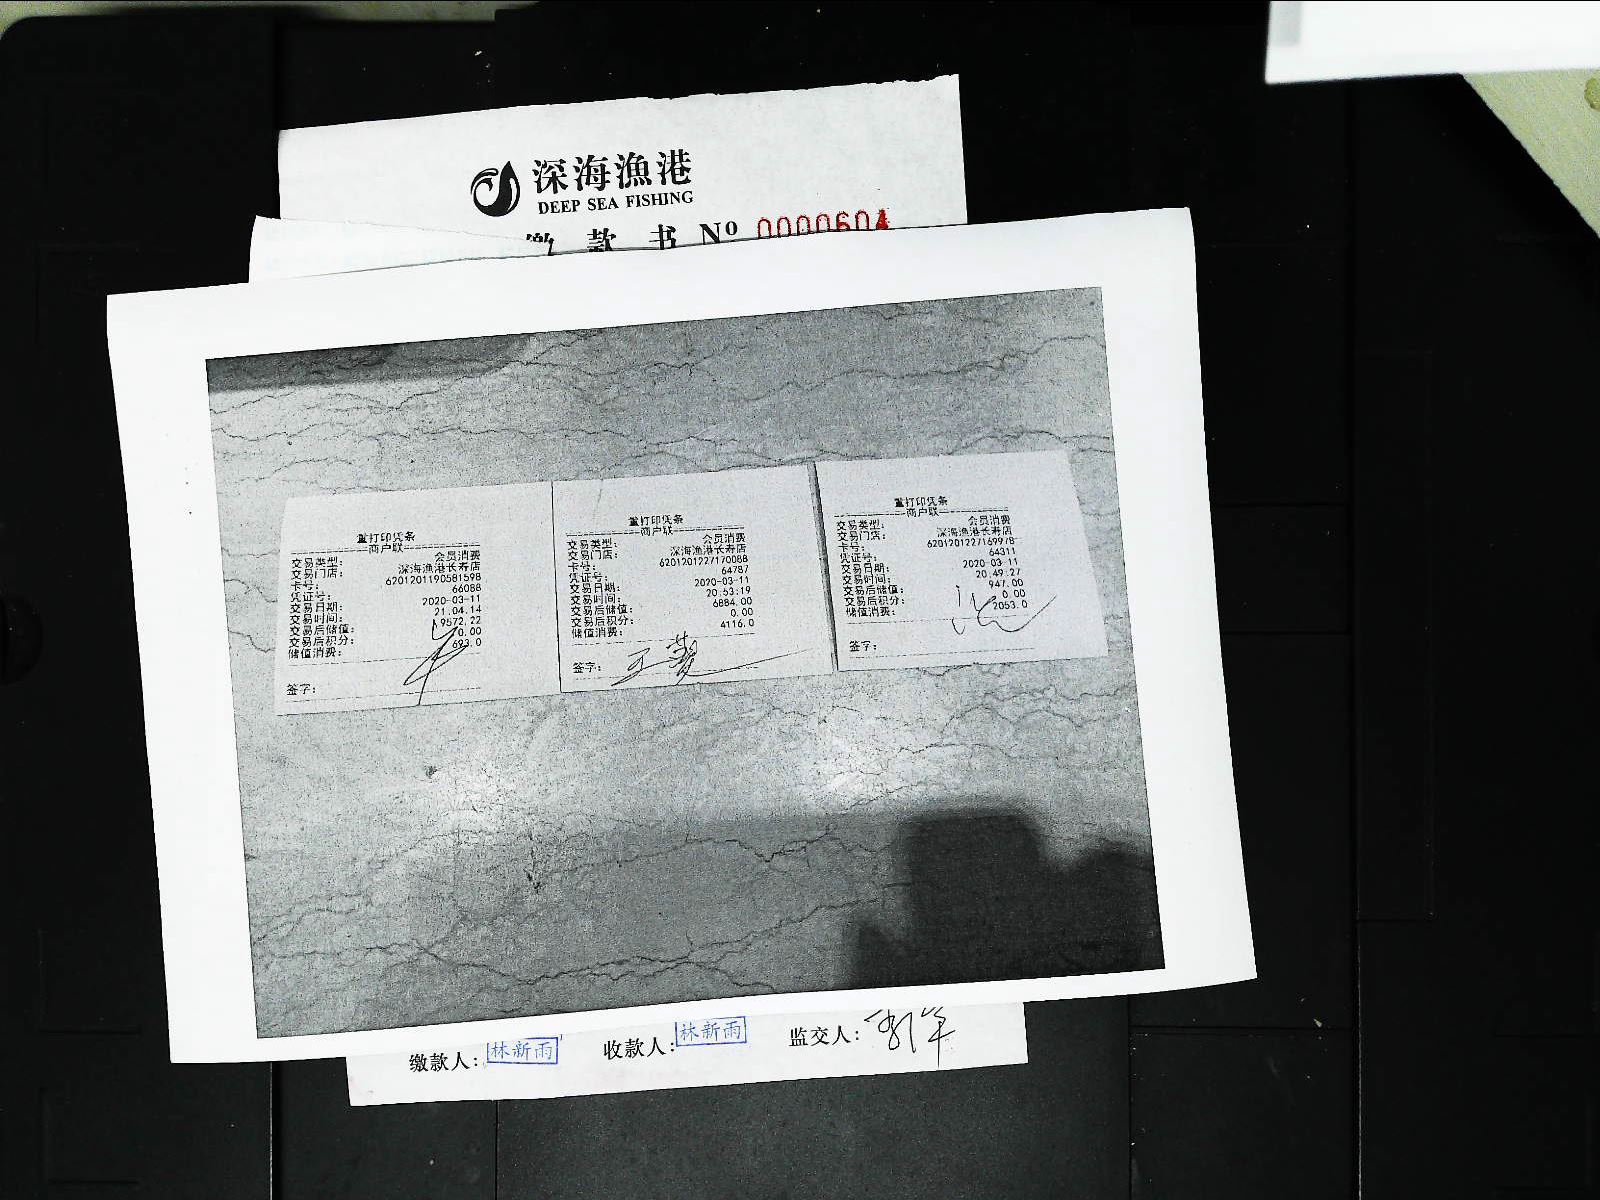 深海渔港
DEEP SEA FISHING
缴 款 书 Nº 0000604
重打印凭条
商户联
交易类型: 会员消费
交易门店: 深海渔港长寿店
卡号: 6201201190581598
凭证号: 66088
交易日期: 2020-03-11
交易时间: 21.04.14
交易后储值: 9572.22
交易后积分: 0.00
储值消费: 693.0
签字:
重打印凭条
商户联
交易类型: 会员消费
交易门店: 深海渔港长寿店
卡号: 6201201227170088
凭证号: 64787
交易日期: 2020-03-11
交易时间: 20:53:19
交易后储值: 6884.00
交易后积分: 0.00
储值消费: 4116.0
签字:
重打印凭条
商户联
交易类型: 会员消费
交易门店: 深海渔港长寿店
卡号: 6201201227169978
凭证号: 64311
交易日期: 2020-03-11
交易时间: 20.49.27
交易后储值: 947.00
交易后积分: 0.00
储值消费: 2053.0
签字:
缴款人: 林新雨 收款人: 林新雨 监交人: